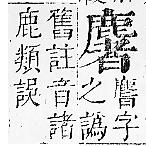 字
之譌
舊註音諸
鹿類誤